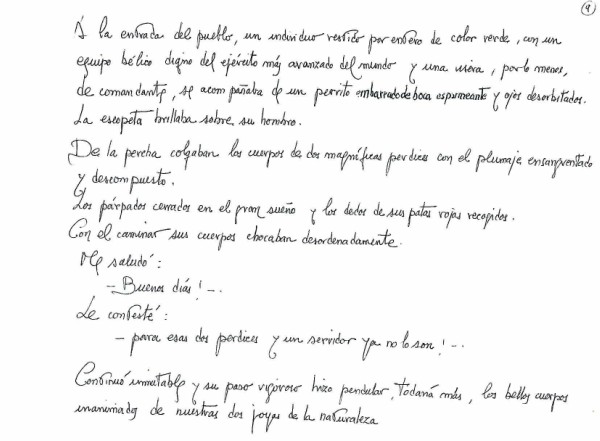 9
A la entrada del pueblo, un individuo vestido por entero de color verde, con un
equipo bélico digno del ejército más avanzado del mundo y una visera, por lo menos,
de comandante, se acompañaba de un perrito embarrado de boca espumeante y ojos desorbitados.
La escopeta brillaba sobre su hombro.
De la percha colgaban los cuerpos de dos magníficas perdices con el plumaje ensangrentado
y descompuesto.
Los párpados cerrados en el gran sueño y los dedos de sus patas rojas recogidos.
Con el caminar sus cuerpos chocaban desordenadamente.
Me saludó:
- Buenos días! -.
Le contesté:
- para esas dos perdices y un servidor ya no lo son! -.
Continuó inmutable y su paso vigoroso hizo pendular, todavía más, los bellos cuerpos
inanimados de nuestras dos joyas de la naturaleza